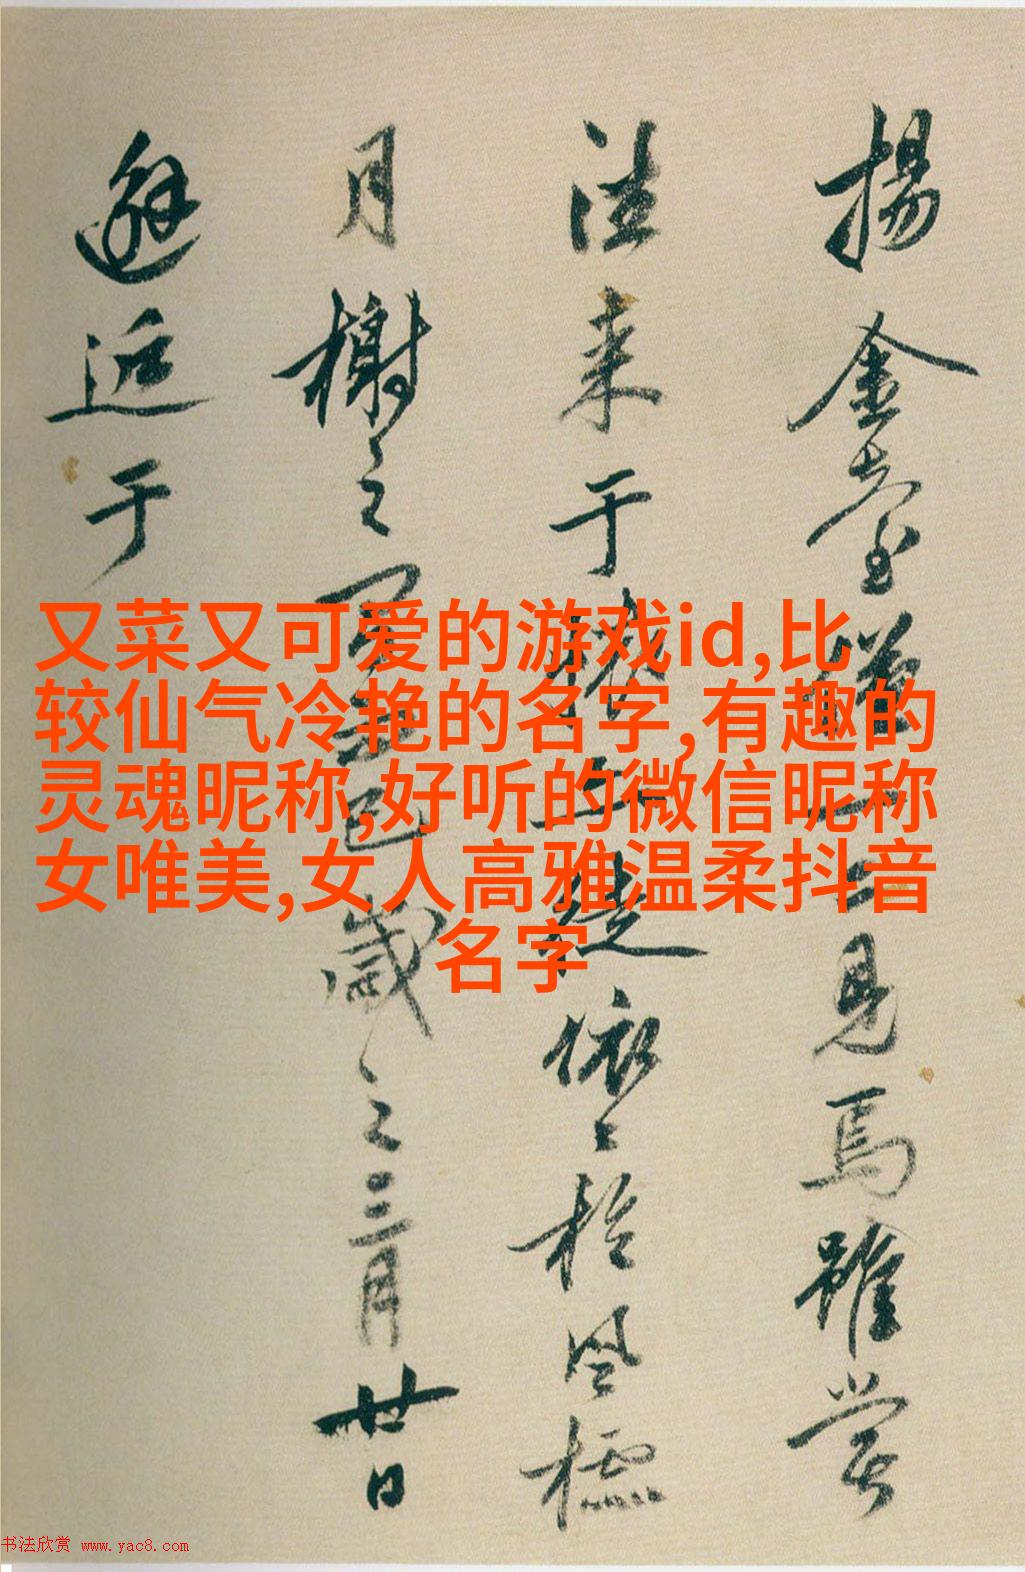 揚金臺
見馬雖嘗
往来于
依〻於風標
月榭之
歲之三月廿日
邂逅于
又菜又可爱的游戏id,比
较仙气冷艳的名字,有趣的
灵魂昵称,好听的微信昵称
女唯美,女人高雅温柔抖音
名字
书法欣赏 www.yac8.com